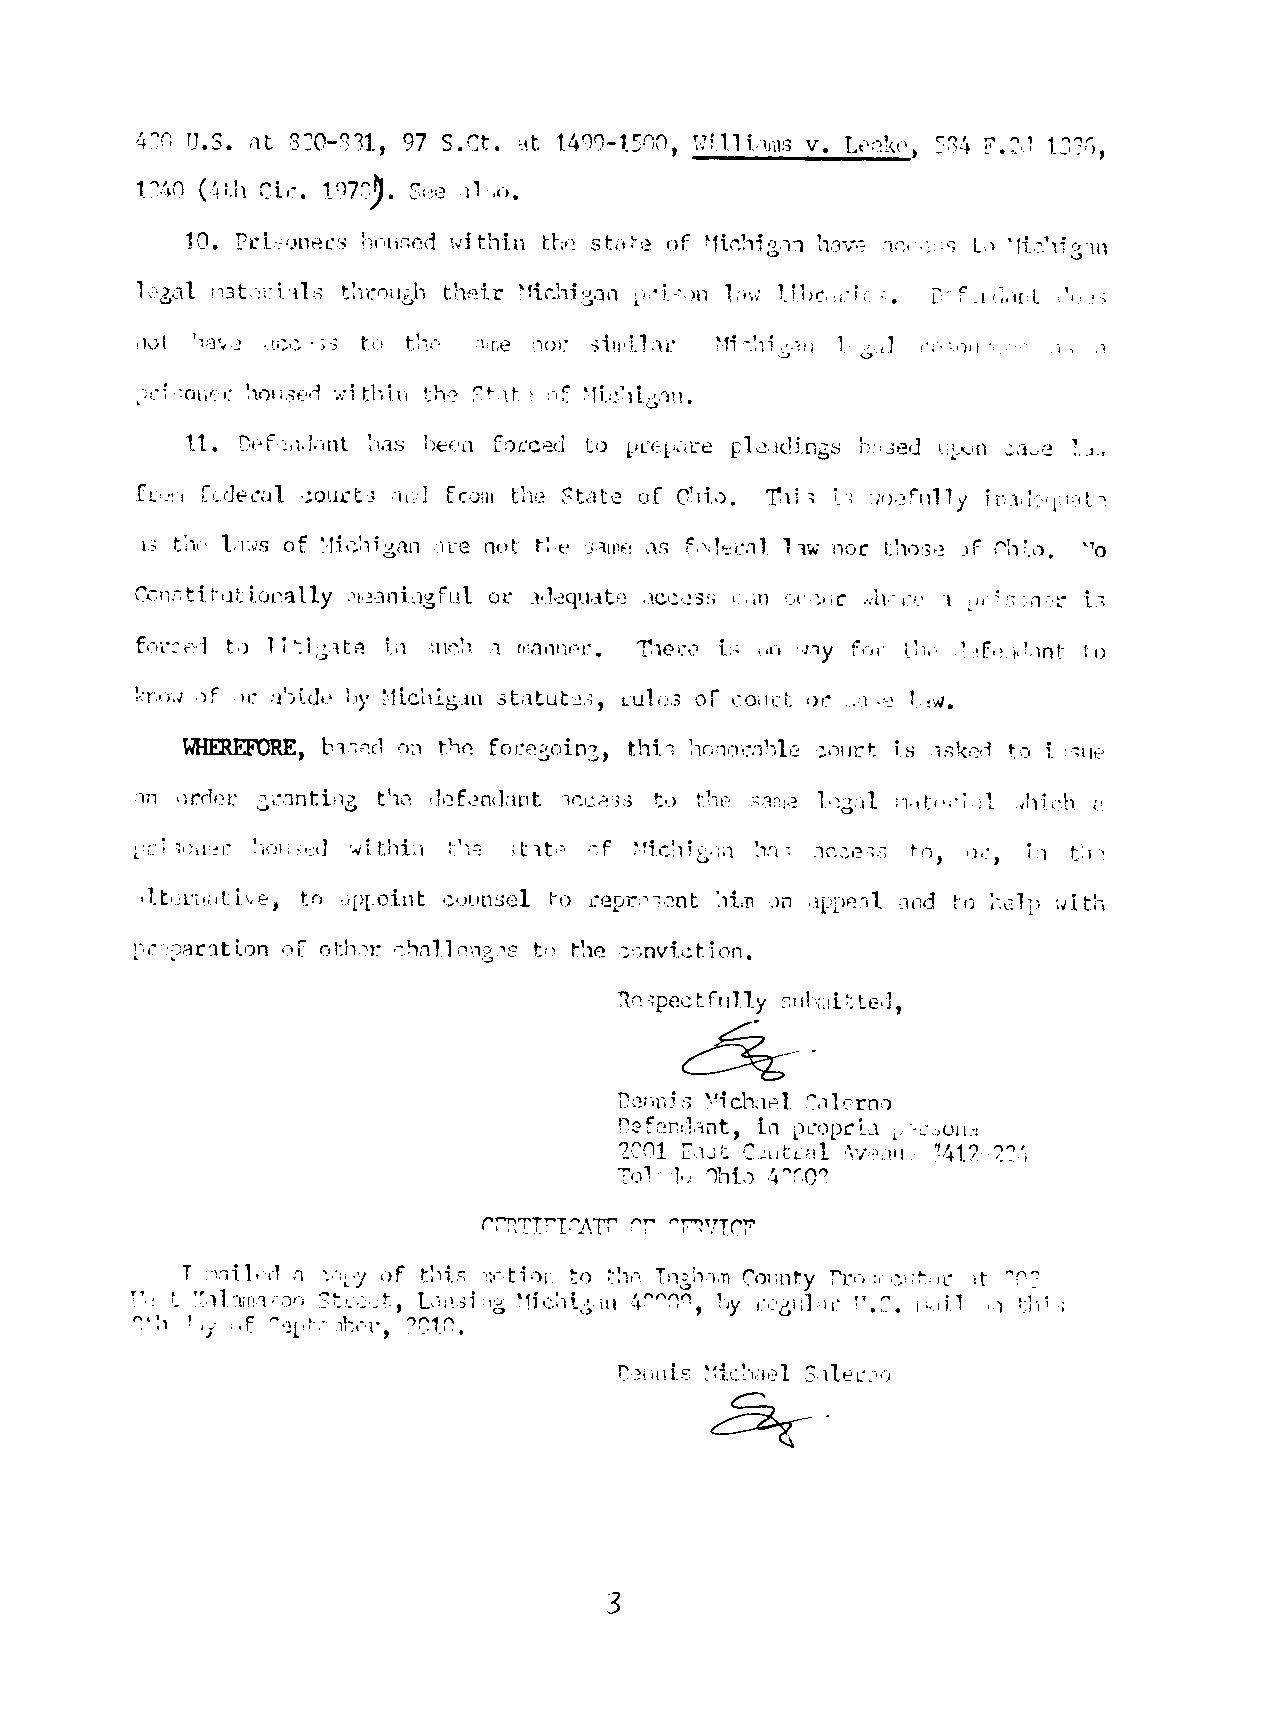 430 U.S. at 830-831, 97 S.Ct. at 1499-1500, Williams v. Leeke, 584 F.2d 1336,
1340 (4th Cir. 1978). See also.
10. Prisoners housed within the state of Michigan have access to Michigan
legal materials through their Michigan prison law libraries. Defendant does
not have access to the same nor similar Michigan legal resources as a
prisoner housed within the State of Michigan.
11. Defendant has been forced to prepare pleadings based upon case law
from federal courts and from the State of Ohio. This is woefully inadequate
as the laws of Michigan are not the same as federal law nor those of Ohio. No
Constitutionally meaningful or adequate access can occur where a prisoner is
forced to litigate in such a manner. There is no way for the defendant to
know of or abide by Michigan statutes, rules of court or case law.
WHEREFORE, based on the foregoing, this honorable court is asked to issue
an order granting the defendant access to the same legal material which a
prisoner housed within the state of Michigan has access to, or, in the
alternative, to appoint counsel to represent him on appeal and to help with
preparation of other challenges to the conviction.
Respectfully submitted,
Dennis Michael Salerno
Defendant, in propria persona
2001 East Central Avenue
Toledo Ohio
CERTIFICATE OF SERVICE
I mailed a copy of this motion to the Ingham County Prosecutor at
West Kalamazoo Street, Lansing Michigan by regular U.S. mail on this
day of September, 2010.
Dennis Michael Salerno
3